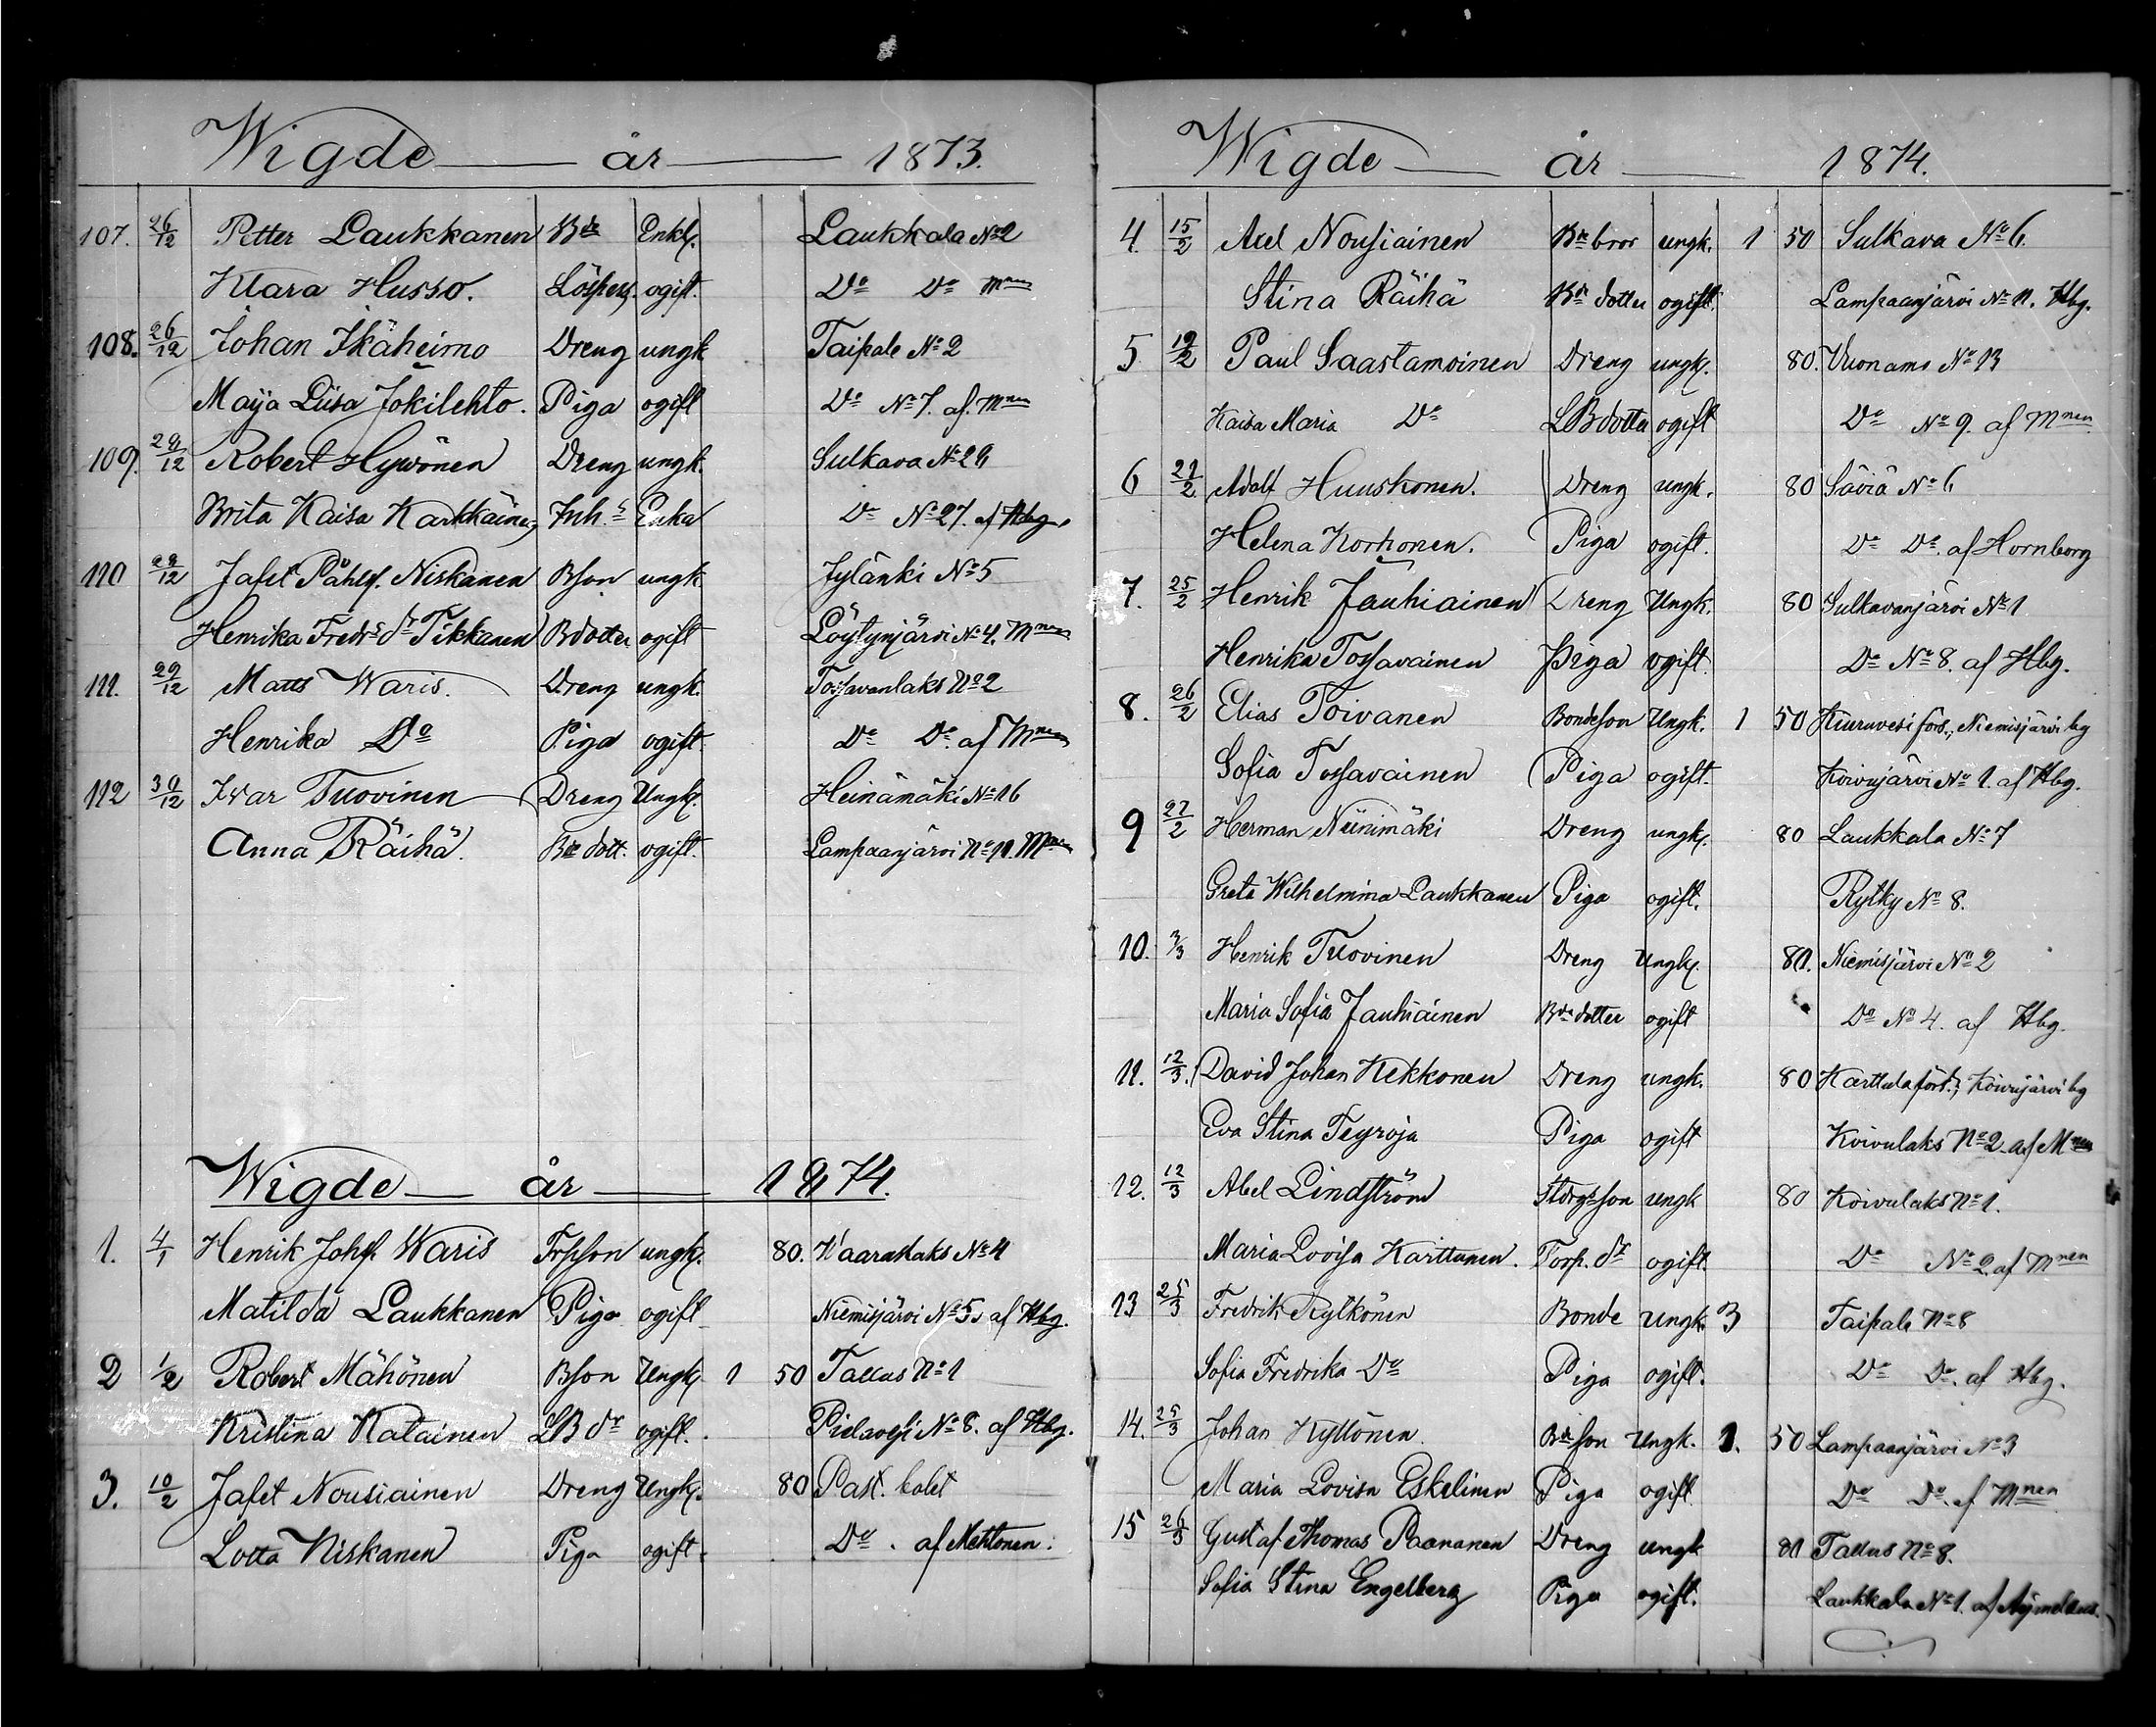 Wigde år 1873.
107. 26/12 Petter Laukkanen Bde Enkl. Laukkala No 2
Klara Husso. Löspers. ogift. Do Do Mnen
108. 26/12 Johan Ikäheimo Dreng ungk Taipale No 2
Maija Liisa Jokilehto. Piga ogift Do No 7. af Mnen
109. 29/12 Robert Hywönen Dreng ungk. Sulkava No 29
Brita Kaisa Karkkäinen Inh.s Enka Do No 27. af Hbg.
110 29/12 Jafet Påhlsf. Niskanen Bson ungk Jylänki No 5
Henrika Fredrs dr Tikkanen Bdotter ogift Löytynjärvi No 4. Mnen
111. 29/12 Matts Waris. Dreng ungk. Tossavanlaks No 2
Henrika Do Piga ogift Do Do. af Mnen
112 30/12 Ivar Tuovinen Dreng Ungk. Heinämäki No 16
Anna Räihä. Bde dott. ogift. Lampaanjärvi No 11. Mnen
Wigde år 1874.
1. 4/1 Henrik Johsf. Waris Torpson ungk. 80. Waaraslaks No 4
Matilda Laukkanen Piga ogift Niemisjärvi No 5. af Hbg.
2 1/2 Robert Mähönen Bson Ungk. 1 50 Tallus No 1
Kristina Katainen LB dr ogift. Pielavesi No 8. af Hbg.
3. 10/2 Jafet Nousiainen Dreng Ungk. 80 Past. bolet
Lotta Niskanen Piga ogift. Do. af Mehtonen.
Wigde år 1874.
4. 15/2 Axel Nousiainen Bde bror ungk. 1 50 Sulkava No 6.
Stina Räihä Bde dotter ogift. Lampaanjärvi No 11. Hbg.
5 19/2 Paul Saastamoinen Dreng ungk. 80. Vuonamo No 13
Kaisa Maria Do LBdotter ogift Do No 9. af Mnen
6 22/2 Adolf Huuskonen. Dreng ungk. 80 Säviä No 6
Helena Korhonen. Piga ogift. Do Do. af Hornborg
7. 25/2 Henrik Jauhiainen Dreng Ungk. 80 Sulkavanjärvi No 1
Henrika Tossavainen Piga ogift Do No 8. af Hbg.
8. 26/2 Elias Toivanen Bondeson Ungk. 1 50 Kiuruvesi förs., Niemisjärvi by
Sofia Tossavainen Piga ogift. Koivujärvi No 1. af Hbg.
9 27/2 Herman Niinimäki Dreng ungk. 80 Laukkala No 7
Greta Wilhelmina Laukkanen Piga ogift. Rytky No 8.
10. 3/3 Henrik Tuovinen Dreng Ungk. 80. Niemisjärvi No 2
Maria Sofia Jauhiainen Bde dotter ogift Do No 4. af Hbg.
11. 12/3. David Johan Kekkonen Dreng ungk. 80 Karttula förs., Koivujärvi by
Eva Stina Piga ogift Koivulaks No 2 af Mnen
12. 12/3 Abel Lindström son ungk 80 Koivulaks No 1.
Maria Lovisa Karttunen. Torp. dr ogift. Do No 2. af Mnen
13 25/3 Fredrik Rytkönen Bonde Ungk. 3 Taipale No 8
Sofia Fredrika Do Piga ogift. Do Do. af Hbg.
14. 25/3 Johan Kyllönen Bde son Ungk. 1. 50 Lampaanjärvi No 3
Maria Lovisa Eskelinen Piga ogift Do Do. af Mnen
15 26/3 Gustaf Thomas Paananen Dreng ungk 80 Tallus No 8.
Sofia Stina Engelberg Piga ogift. Laukkala No 1. af